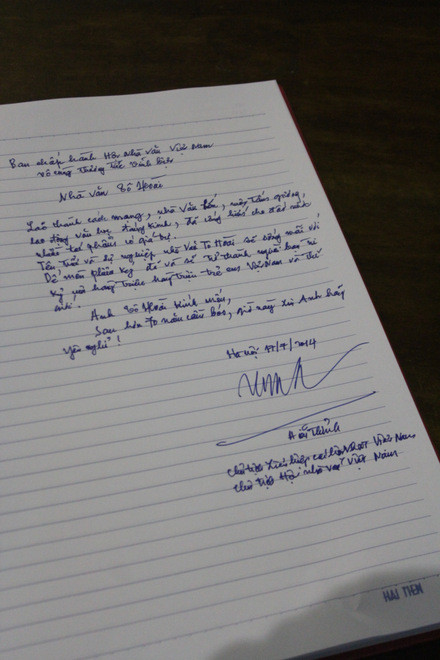 Ban chấp hành Hội Nhà văn Việt Nam
vô cùng thương tiếc vĩnh biệt
Nhà văn Tô Hoài
Lão thành cách mạng, nhà văn lớn, một tấm gương
lao động văn học đáng kính, đã cống hiến cho đất nước
nhiều tác phẩm có giá trị.
Tên tuổi và sự nghiệp nhà văn Tô Hoài sẽ sống mãi với
Dế mèn phiêu lưu ký đã và sẽ trở thành người bạn tri
kỷ của hàng triệu hàng triệu trẻ em Việt Nam và thế
giới.
Anh Tô Hoài kính mến,
Sau hơn 70 năm cầm bút, giờ này xin Anh hãy
yên nghỉ!
Hà Nội 17/7/2014
Hữu Thỉnh
Chủ tịch Liên hiệp các Hội VHNT Việt Nam
Chủ tịch Hội Nhà văn Việt Nam
HẢI TIẾN